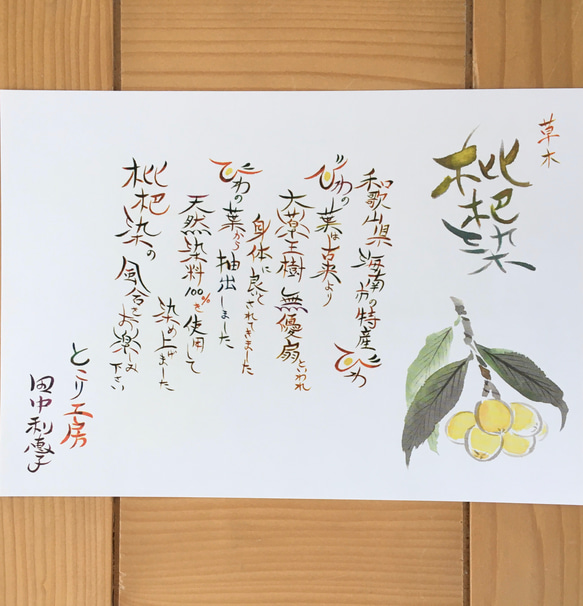 草木
枇杷染
和歌山県 海南市の特産 びわ
びわの葉は古来より
大薬王樹 無優扇といわれ
身体に良いとされてきました
びわの葉から 抽出しました
天然染料100%を使用して
染め上げました
枇杷染の 風合をお楽しみ
下さい
とこり工房
田中利恵子